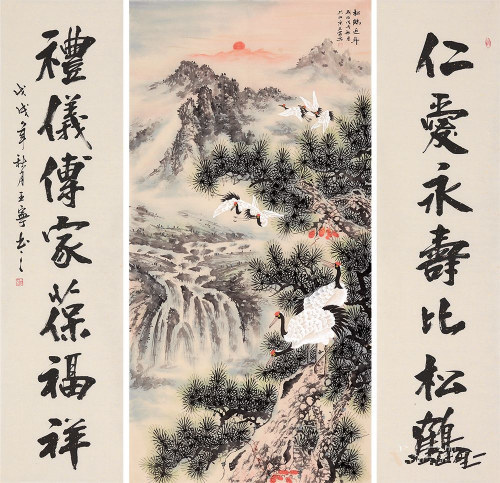 仁愛永壽比松鶴
松鶴延年
禮儀傳家葆福祥
戊戌年秋月王寧書